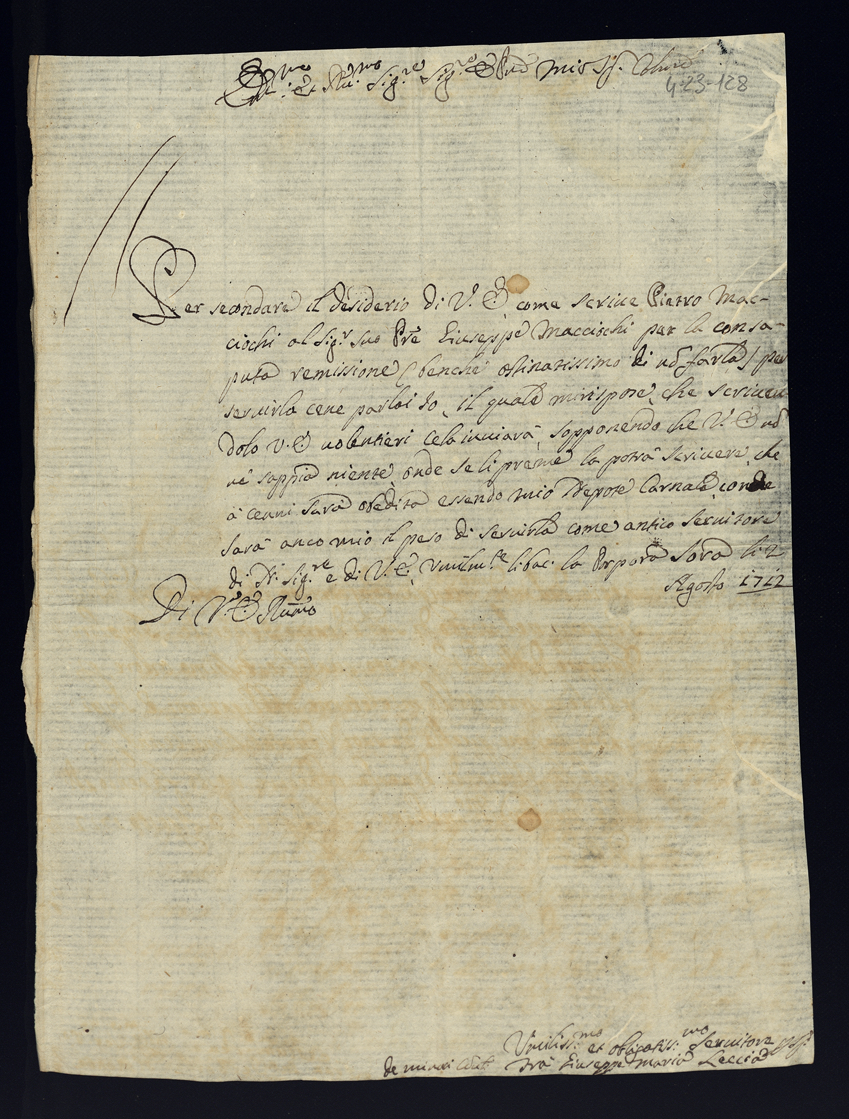 Em.mo et Rev.mo Sig.re Sig.re e Pñe mio
4-23-128
Per secondare il desiderio di V. E. come scrive Pietro Mac-
ciochi al Sig.r suo Prẽ Giuseppe Macciochi per la consa-
puta remissione (benche ostinatissimo di nõ farla) per
servirla cene parlai Io, il quale mirispose, che scriven
dolo V. E. volentieri cela inviarà, sopponendo che V. E. nõ
ne sappia niente, onde se li preme la potrà scrivere, che
à cenni sarà obedita essendo mio Nepote Carnale, come
sarà anco mio il peso di servirla come antico servitore
di N. Sig.re e di V. E., Umilm.te li bac. la Porpora Sora li 2
Agosto 1712
Di V. E. Rev̄ma
Umiliss.mo et obligatis.mo Servitore
de minori Fra Giuseppe Maria